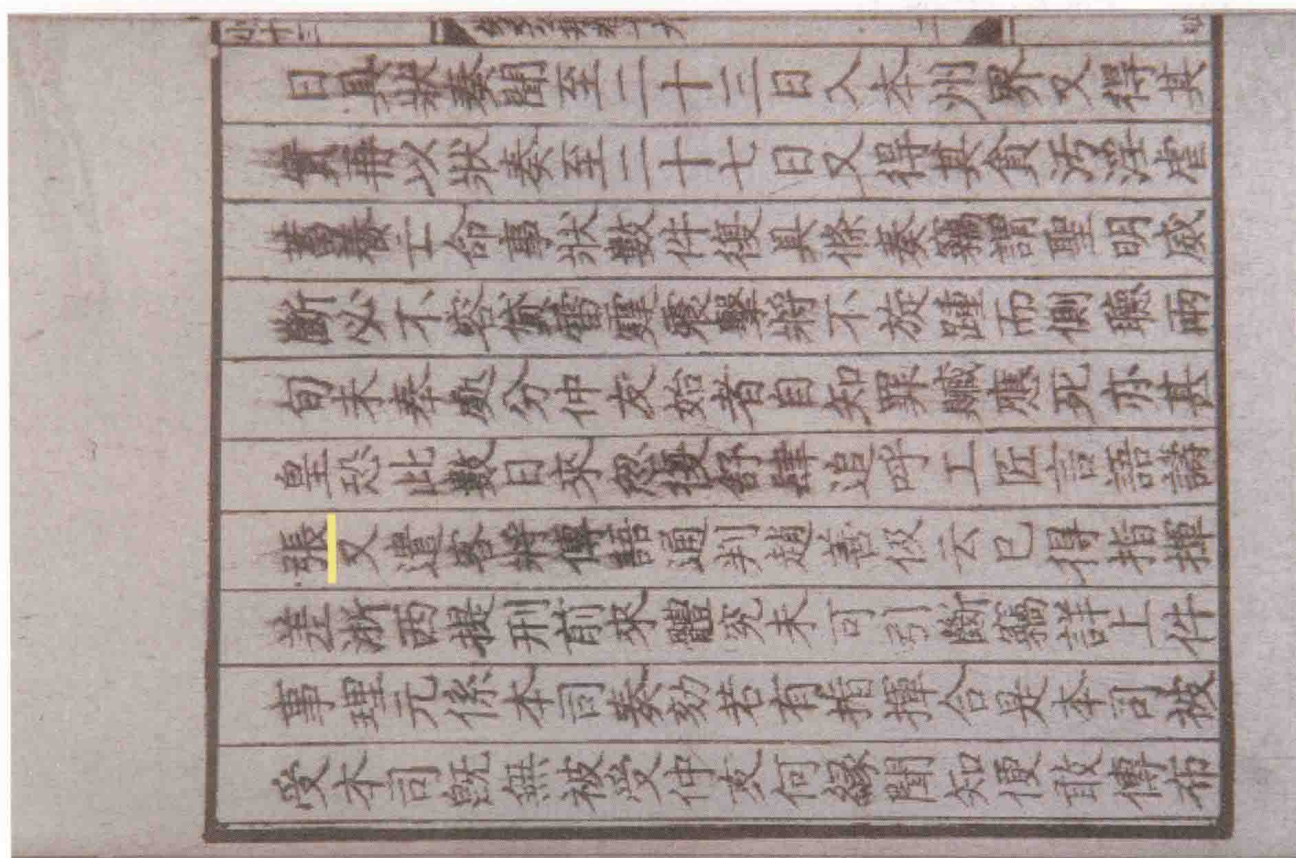 日具狀奏聞至二十三日入本州界又得其
實再以狀奏至二十七日又得其貪污淫虐
蓄養亡命事狀數件復具條奏竊謂聖明威
斷必不容貸雷霆震擊將不旋踵而側聽兩
旬未奉處分仲友始者自知罪贓應死亦甚
皇恐比數日來忽復舒肆追呼工匠言語譸
張又遣客將傳語通判趙善伋云已得指揮
差浙西提刑前來體究未可引斷竊詳上件
事理元係本司奏劾若有指揮合是本司被
受本司既無被受仲友何緣聞知便敢傳布